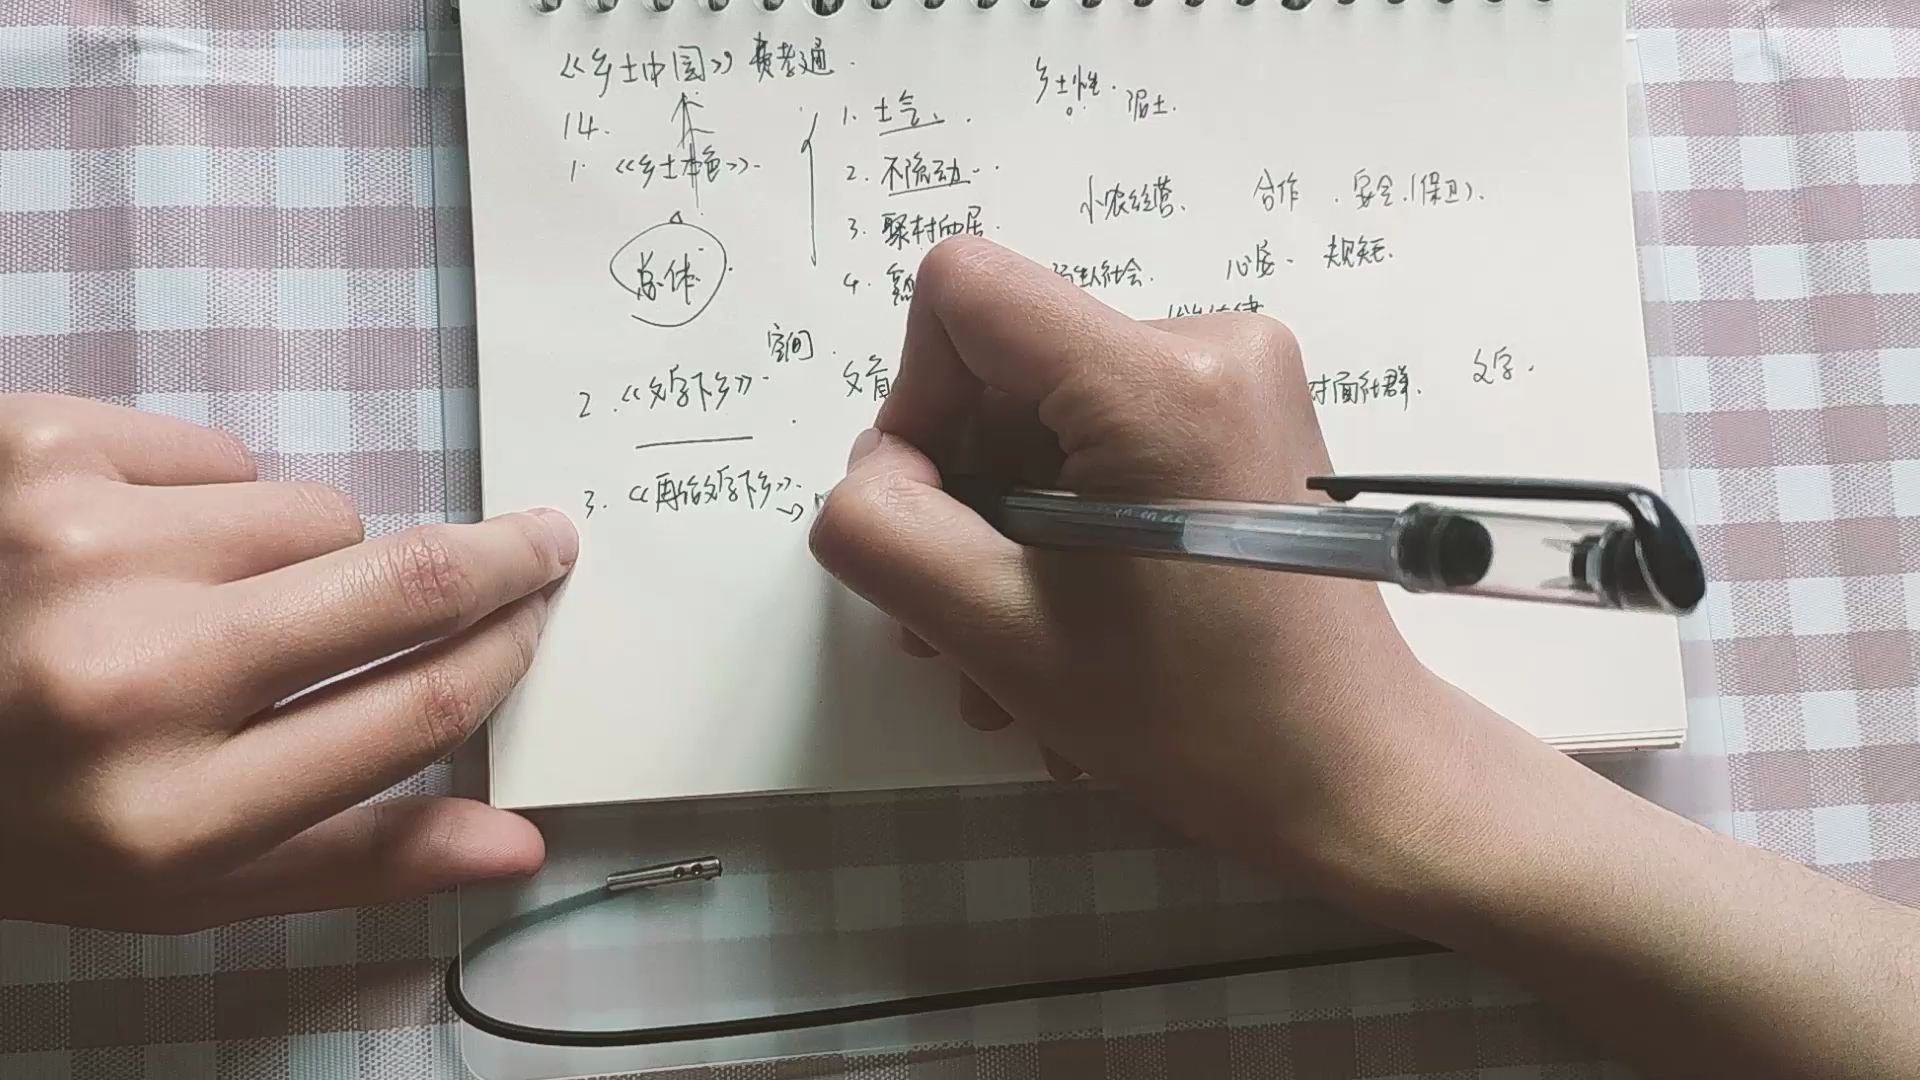 《乡土中国》 费孝通.
14. 1. 土气、. 乡土性. 泥土.
1. 《乡土本色》. 2. 不流动..
3. 聚村而居. 小农经营、 合作. 安全.(保卫).
总体 4. 生人社会. 心 规矩.
空间.
2. 《文字下乡》. 文盲 对面社群. 文字.
3. 《再论文字下乡》.